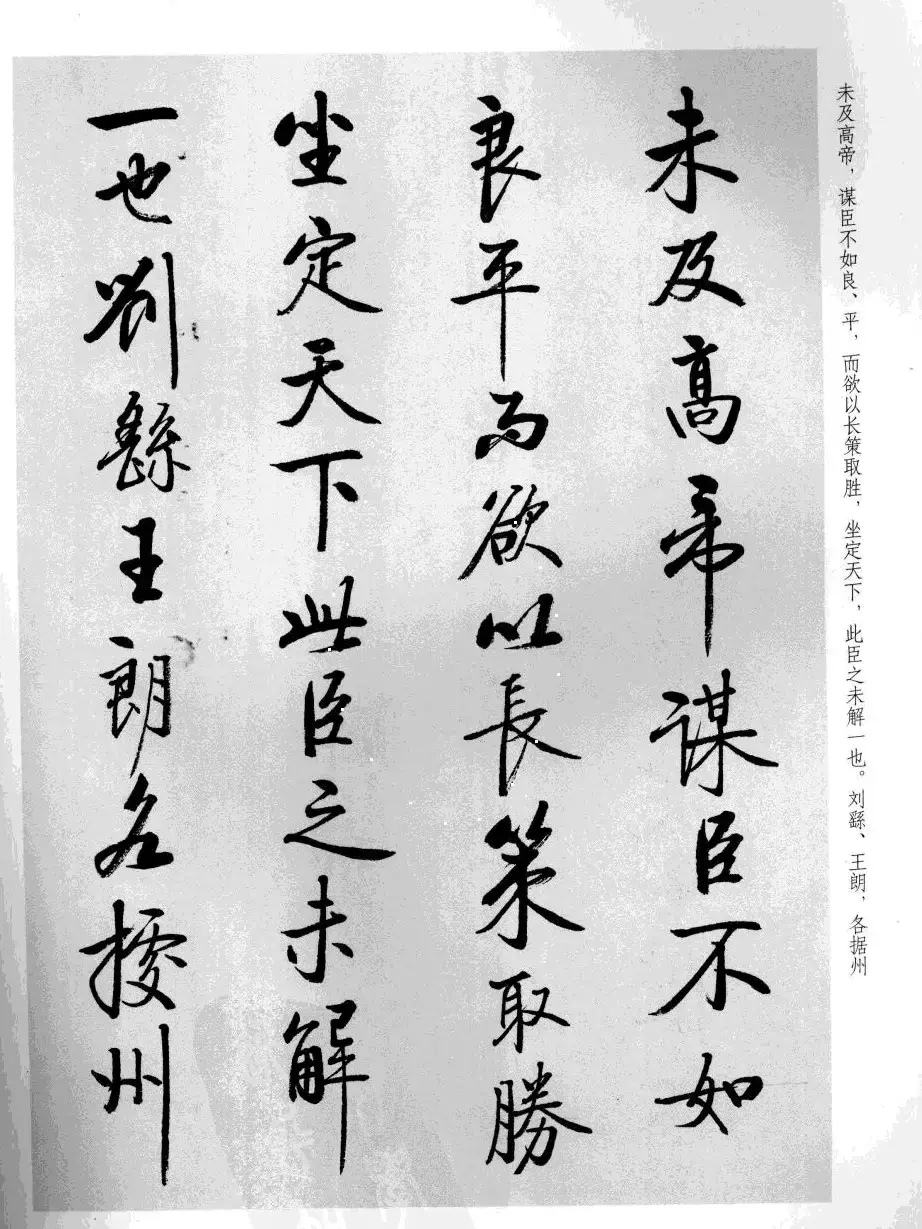 未及高帝，谋臣不如良、平，而欲以长策取胜，坐定天下，此臣之未解一也。刘繇、王朗，各据州
未及高帝謀臣不如
良平而欲以長策取勝
坐定天下此臣之未解
一也劉繇王朗各據州